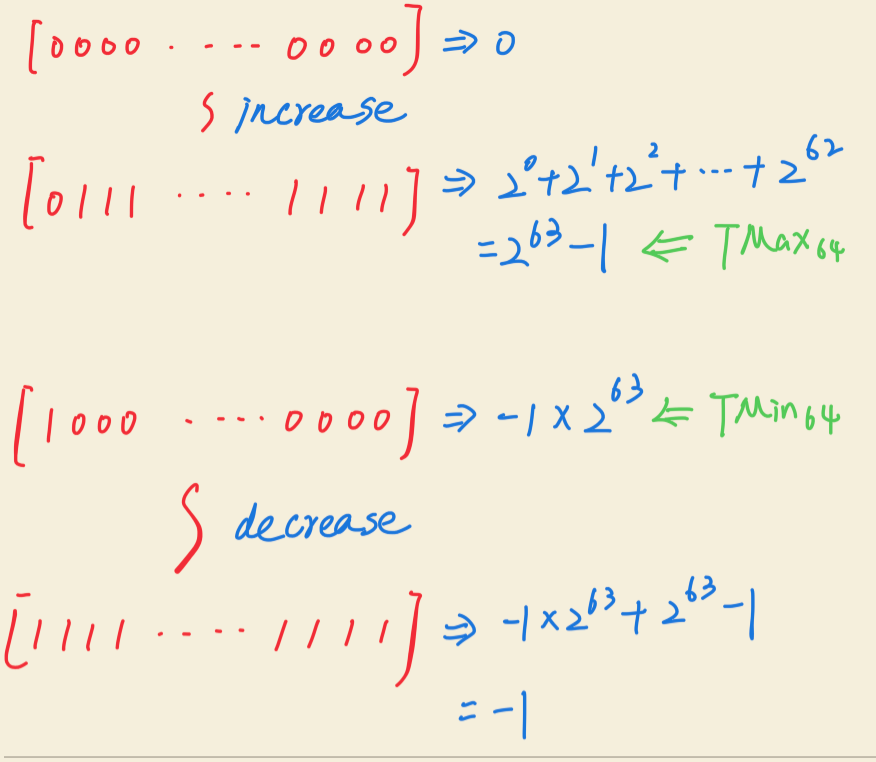 [0000 · ···· 0000] ⇒ 0
∫ increase
[0111 ····· 1111] ⇒ 2⁰+2¹+2²+···+2⁶²
=2⁶³-1 ⇐ TMax₆₄
[1000 ····· 0000] ⇒ -1×2⁶³ ⇐ TMin₆₄
∫ decrease
[1111 ····· 1111] ⇒ -1×2⁶³+2⁶³-1
= -1